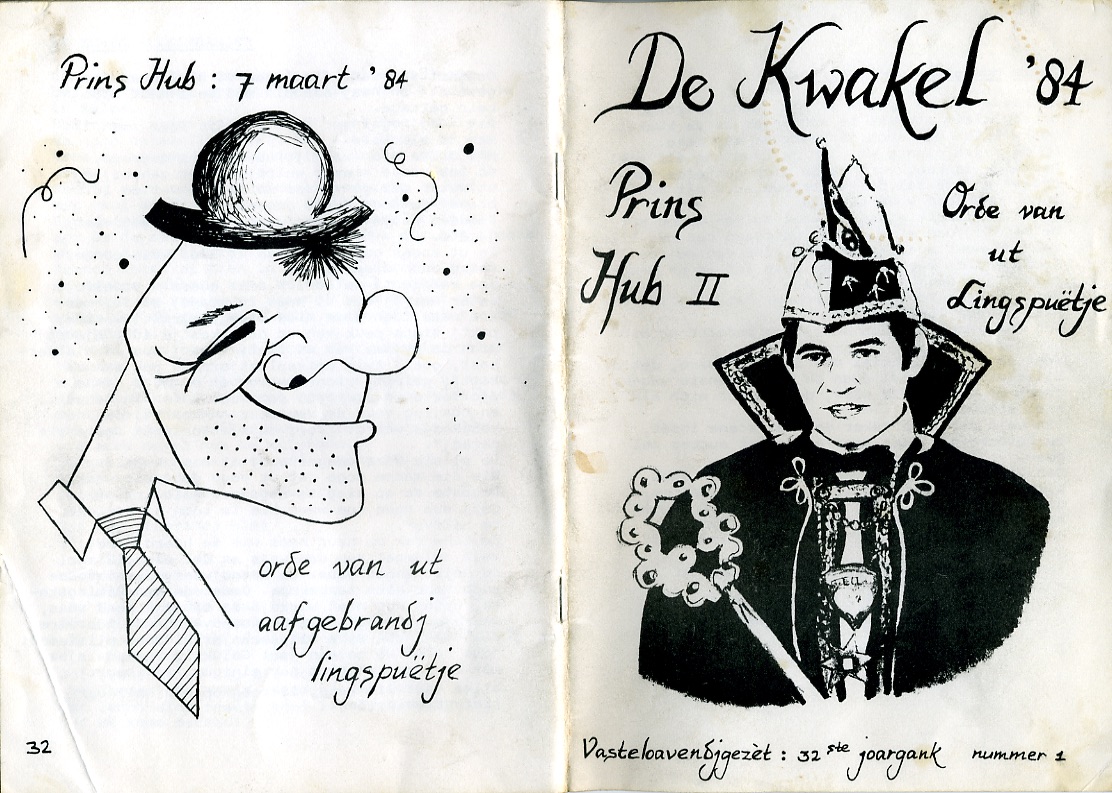 Prins Hub : 7 maart '84
orde van ut
aafgebrandj
lingspuëtje
32
De Kwakel '84
Prins
Hub II
Orde van
ut
Lingspuëtje
Vasteloavendjgezèt : 32ste joargank nummer 1